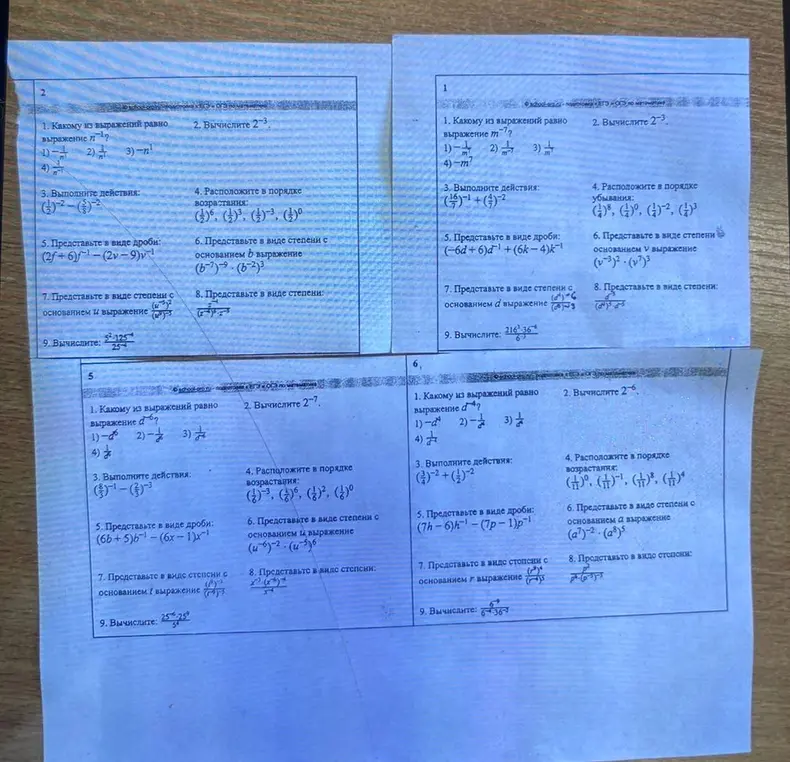 2
© school-pro.ru - подготовка к ЕГЭ и ОГЭ по математике
1. Какому из выражений равно
выражение n⁻¹?
1) −1/n¹ 2) 3) −n¹
4)
2. Вычислите 2⁻³.
3. Выполните действия:
(1/2)⁻² − (5/3)⁻²
4. Расположите в порядке
возрастания:
(1/2)⁶, (1/2)³, (1/2)⁻³, (1/2)⁰
5. Представьте в виде дроби:
(2f + 6)f⁻¹ − (2v − 9)v⁻¹
6. Представьте в виде степени с
основанием b выражение
(b⁻⁷)⁻⁹ · (b⁻²)³
7. Представьте в виде степени с
основанием u выражение
8. Представьте в виде степени:
9. Вычислите:
1
© school-pro.ru - подготовка к ЕГЭ и ОГЭ по математике
1. Какому из выражений равно
выражение m⁻⁷?
1) −1/m⁷ 2) 1/m⁻⁷ 3) 1/m⁷
4) −m⁷
2. Вычислите 2⁻³.
3. Выполните действия:
(16/7)⁻¹ + (4/7)⁻²
4. Расположите в порядке
убывания:
(1/4)⁸, (1/4)⁰, (1/4)⁻², (1/4)³
5. Представьте в виде дроби:
(−6d + 6)d⁻¹ + (6k − 4)k⁻¹
6. Представьте в виде степени
основанием v выражение
(v⁻³)² · (v⁷)³
7. Представьте в виде степени с
основанием d выражение
8. Представьте в виде степени:
9. Вычислите:
5
© school-pro.ru - подготовка к ЕГЭ и ОГЭ по математике
1. Какому из выражений равно
выражение d⁻⁶?
1) −d⁶ 2) −1/d⁶ 3) 1/d⁻⁶
4) 1/d⁶
2. Вычислите 2⁻⁷.
3. Выполните действия:
(8/5)⁻¹ − (2/5)⁻³
4. Расположите в порядке
возрастания:
(1/6)⁻³, (1/6)⁶, (1/6)², (1/6)⁰
5. Представьте в виде дроби:
(6b + 5)b⁻¹ − (6x − 1)x⁻¹
6. Представьте в виде степени с
основанием u выражение
(u⁻⁶)⁻² · (u⁻⁵)⁶
7. Представьте в виде степени с
основанием t выражение
8. Представьте в виде степени:
9. Вычислите:
6
© school-pro.ru - подготовка к ЕГЭ и ОГЭ по математике
1. Какому из выражений равно
выражение d⁻⁴?
1) −d⁴ 2) −1/d⁴ 3) 1/d⁴
4) 1/d⁻⁴
2. Вычислите 2⁻⁶.
3. Выполните действия:
(3/4)⁻² + (1/2)⁻²
4. Расположите в порядке
возрастания:
(1/11)⁰, (1/11)⁻¹, (1/11)⁸, (1/11)⁴
5. Представьте в виде дроби:
(7h − 6)h⁻¹ − (7p − 1)p⁻¹
6. Представьте в виде степени с
основанием a выражение
(a⁷)⁻² · (a⁸)⁵
7. Представьте в виде степени с
основанием r выражение
8. Представьте в виде степени:
9. Вычислите: